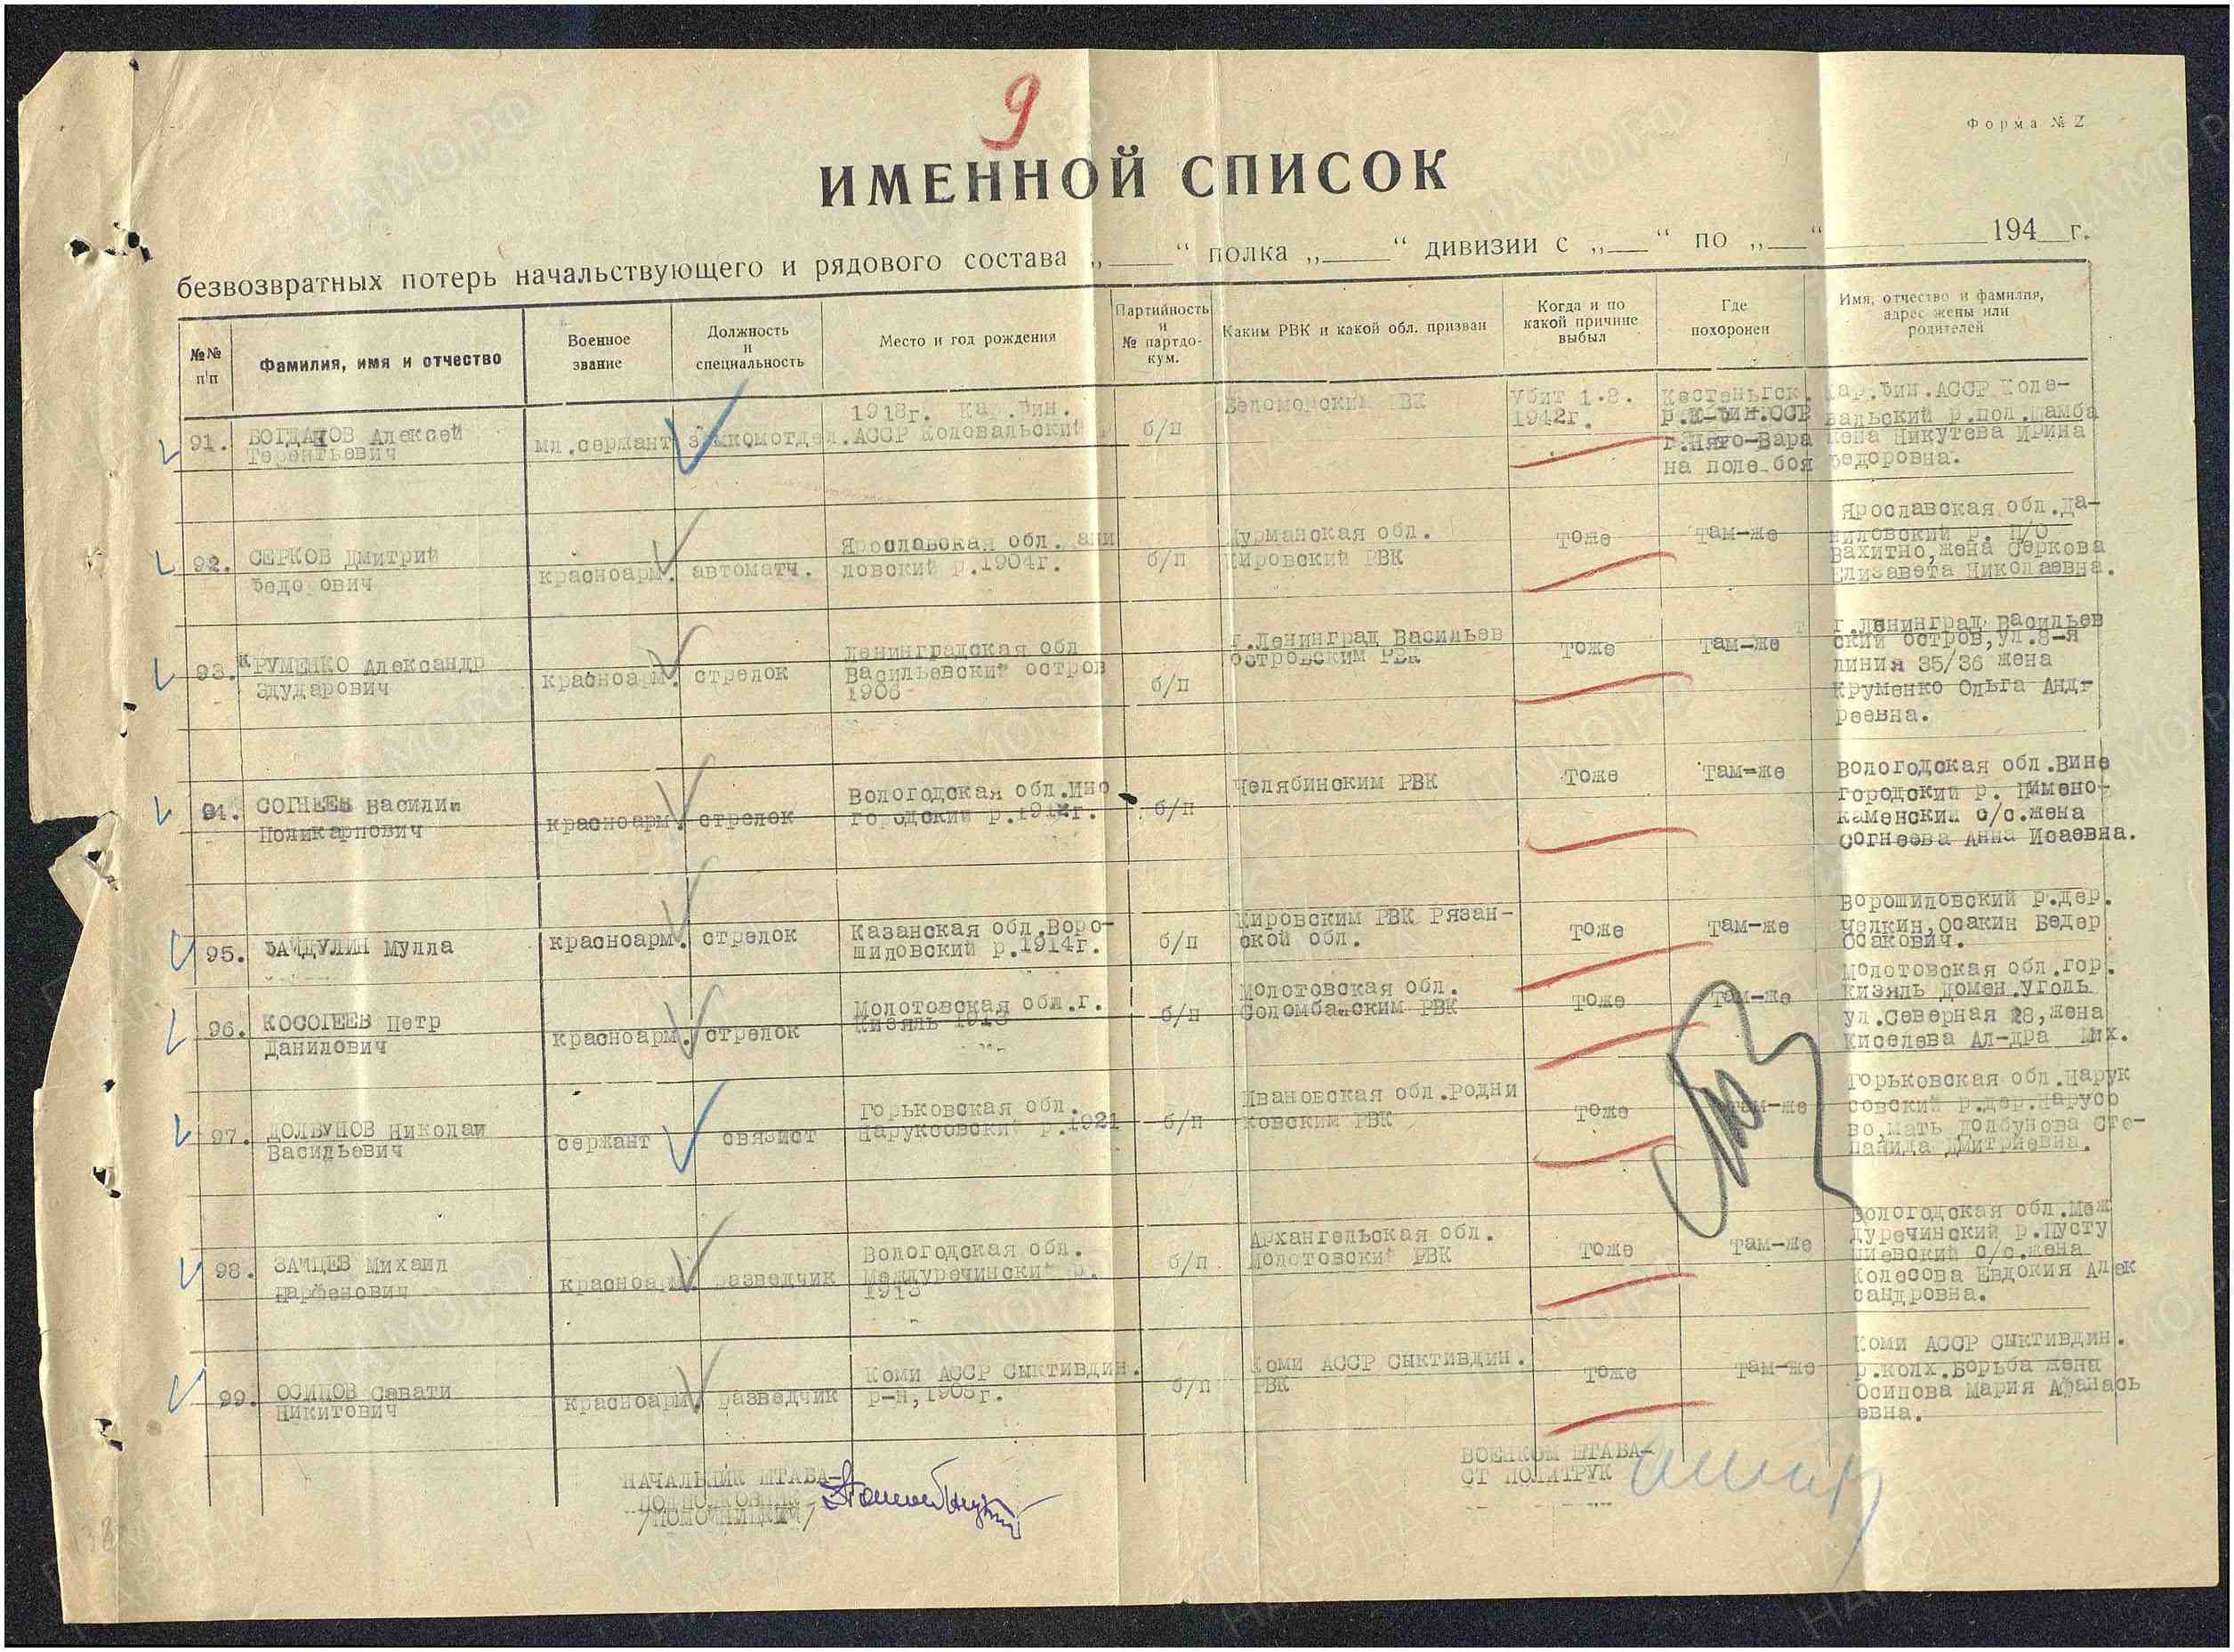 9
Форма № 2
ИМЕННОЙ СПИСОК
безвозвратных потерь начальствующего и рядового состава „ “ полка „ “ дивизии с „ “ по „ “ 194 г.
№№ п/п
Фамилия, имя и отчество
Военное звание
Должность и специальность
Место и год рождения
Партийность и № партдо-кум.
Каким РВК и какой обл. призван
Когда и по какой причине выбыл
Где похоронен
Имя, отчество и фамилия, адрес жены или родителей
91.
БОГДАНОВ Алексей
Терентьевич
мл.сержант
замкомотдел.
1918г. Кар.Фин.
АССР Коловальский р
б/п
Беломорским РВК
Убит 1.8.
1942г.
Кестеньгск.
р.К-Фин.ССР
г.Нято-Вара
на поле боя
Кар.Фин.АССР Коле-
вальский р.пол.Шамба
жена Никутева Ирина
Федоровна.
92.
СЕРКОВ Дмитрий
Федорович
красноарм.
автоматч.
Ярославская обл. Дани
ловский р.1904г.
б/п
Мурманская обл.
Кировский РВК
тоже
там-же
Ярославская обл.Да-
ниловский р. П/О
Вахитно,жена Серкова
Елизавета Николаевна.
93.
КРУМЕНКО Александр
Эдударович
красноарм.
стрелок
Ленинградская обл
Васильевский остров
1906
б/п
г.Ленинград Васильев
островским РВК
тоже
там-же
г.Ленинград Васильев
ский остров,ул.8-я
линия 35/36 жена
Круменко Ольга Анд-
реевна.
94.
СОГНЕЕВ Василий
Поликарпович
красноарм.
стрелок
Вологодская обл.Ино
городский р.1912г.
б/п
Челябинским РВК
тоже
там-же
Вологодская обл.Вине
городский р. Пимено-
каменский с/с.жена
Согнеева Анна Исаевна.
95.
ФАЙДУЛИН Мулла
красноарм.
стрелок
Казанская обл.Воро-
шиловский р.1914г.
б/п
Кировским РВК Рязан-
ской обл.
тоже
там-же
Ворошиловский р.дер.
Челкин,Осакин Бедер
Осакович.
96.
КОСОГЕЕВ Петр
Данилович
красноарм.
стрелок
Молотовская обл.г.
Кизяль 1913
б/п
Молотовская обл.
Соломбальским РВК
тоже
там-же
Молотовская обл.гор.
Кизяль Домен.уголь
ул.Северная 28,жена
Киселева Ал-дра Мих.
97.
ДОЛБУНОВ Николай
Васильевич
сержант
связист
Горьковская обл.
Наруксовский р.1921
б/п
Ивановская обл.Родни
ковским РВК
тоже
там-же
Горьковская обл.Нарук
совский р.дер.Нарусо
во,мать Долбунова Сте-
панида Дмитриевна.
98.
ЗАЙЦЕВ Михаил
Парфенович
красноарм.
разведчик
Вологодская обл.
Междуречинский р.
1913
б/п
Архангельская обл.
Молотовский РВК
тоже
там-же
Вологодская обл.Меж
дуречинский р.Пусту
шиевский с/с.жена
Колесова Евдокия Алек
сандровна.
99.
ОСИПОВ Савати
Никитович
красноарм.
разведчик
Коми АССР Сыктивдин.
р-н,1903г.
б/п
Коми АССР Сыктивдин.
РВК
тоже
там-же
Коми АССР Сыктивдин.
р.колх.Борьба жена
Осипова Мария Афанась
евна.
НАЧАЛЬНИК ШТАБА-
ПОДПОЛКОВНИК
ВОЕНКОМ ШТАБА-
СТ ПОЛИТРУК